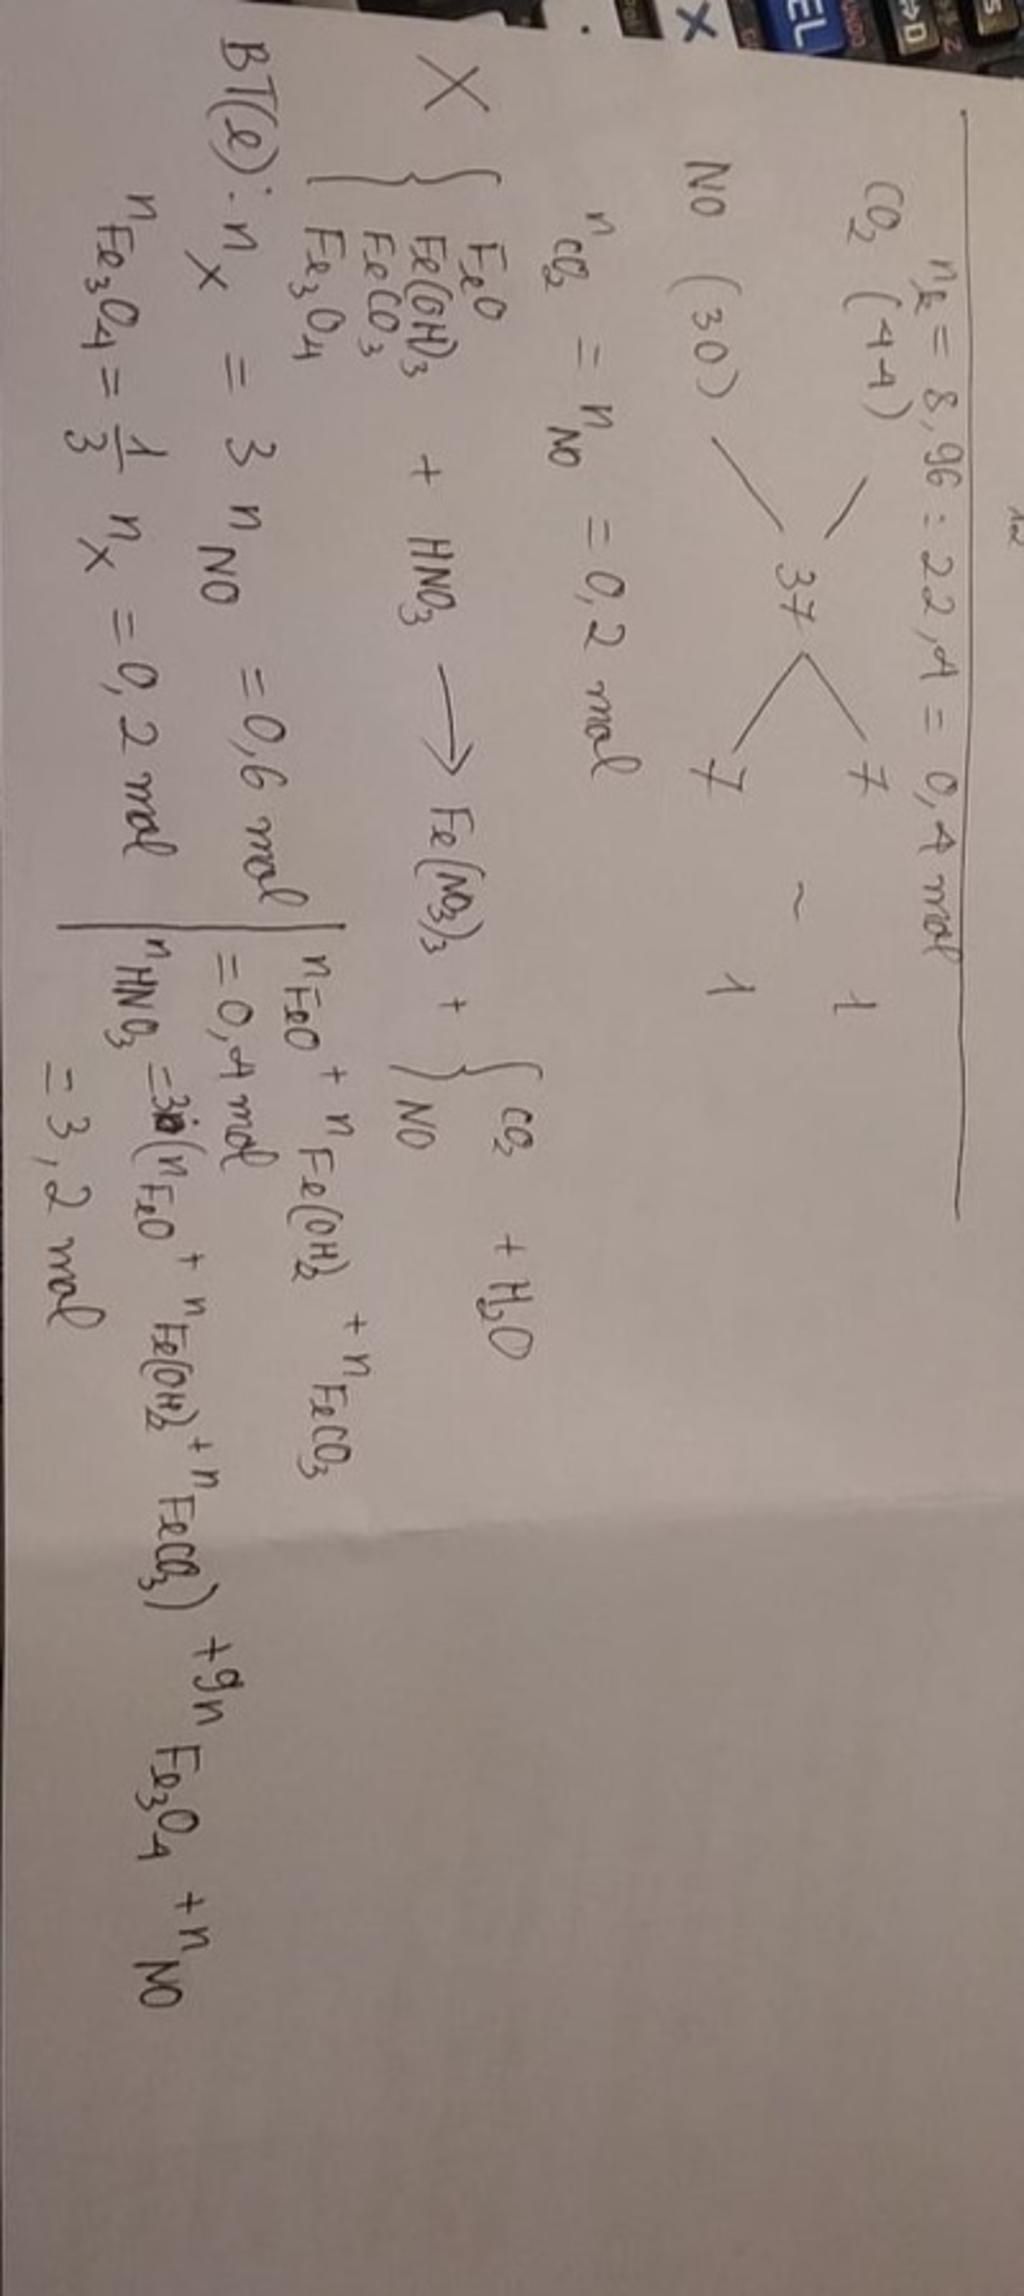 n_k = 8,96 : 22,4 = 0,4 mol
CO₂ (44) 7 1
37 ~
NO (30) 7 1
n_CO₂ = n_NO = 0,2 mol
X { FeO Fe(OH)₃ FeCO₃ Fe₃O₄ + HNO₃ → Fe(NO₃)₃ + { CO₂ NO + H₂O
BT(e): n_X = 3 n_NO = 0,6 mol
n_Fe₃O₄ = 1/3 n_X = 0,2 mol
n_FeO + n_Fe(OH)₂ + n_FeCO₃
= 0,4 mol
n_HNO₃ = 3(n_FeO + n_Fe(OH)₂ + n_FeCO₃) + 9n_Fe₃O₄ + n_NO
= 3,2 mol